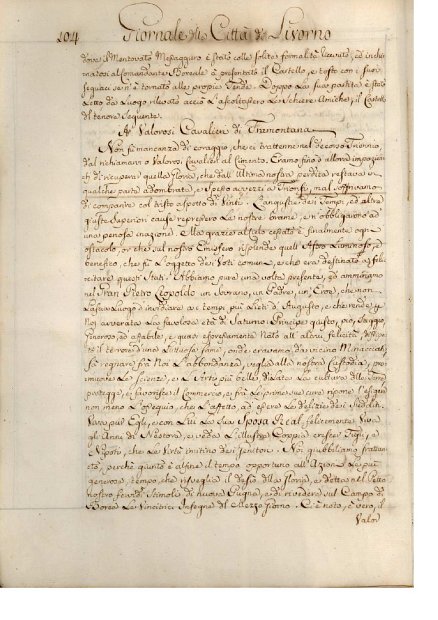 104 Giornale di Città di Livorno
dove il Mentovato Messaggiero è stato colle solite formalità ricevuto, ed inchi-
natosi al Comandante Boreale à presentato il Cartello, e tosto con i suoi
seguaci se n'è tornato alle proprie Tende. Doppo La sua partita è stato
Letto da Luogo rilevato acciò L'ascoltassero Le Schiere Amiche, il Cartello
del tenore seguente.
Ai Valorosi Cavalieri di Tramontana
Non fù mancanza di coraggio, che ci trattenne nel decorso Triennio,
dal richiamarvi o Valorosi Cavalieri al Cimento. Eramo fino d'allora impazien-
ti di ricuperar quella Gloria, che dall'Ultima nostra perdita restava in
qualche parte adombrata, e spesso avvezzi a Trionfi, mal soffrivamo
di comparire col tristo aspetto di Vinti. L'angustie dei Tempi, ed altre
giuste Superiori cause repressero Le nostre brame, e n'obbligarono ad
una penosa inazione. Mà grazie al Cielo cessato è finalmente ogni
ostacolo, or che sul nostro Emisfero risplende quell'Astro Luminoso, e
benefico, che fù L'oggetto dei Voti comuni, e che era destinato a feli-
citare questi Stati. Abbiamo pure una volta presente, ed ammiriamo
nel Gran Pietro Leopoldo un Sovrano, un Padre, un Eroe, che non
Lascia Luogo d'invidiare ai tempi più Lieti d'Augusto, e che rende p
Noi avverata La favolosa età di Saturno. Principe giusto, pio, Saggio,
Generoso, ed affabile, e quasi espressamente Nato all'altrui felicità,
il terrore d'una Luttuosa fame, onde eravamo da vicino Minacciati,
fà regnare frà Noi L'abbondanza, veglia alla nostra Custodia, pro-
muove Le Scienze, e Le Virtù più belle, dilata La cultura delle Terre
protegge, e favorisce il Commercio, e frà Le prime sue cure ripone l'esigere
non meno L'ossequio, che L'affetto, ed essere La delizia dei Sudditi.
Viva pur Egli, e con Lui La Sua Sposa Real felicemente Viva
gli Anni di Nestore, e veda L'illustre Coppia crescer Figli, e
Nipoti, che Le Virtù imitino dei Genitori. Noi giubbiliamo frattan-
to, perchè giunto è alfine il tempo opportuno all'Azioni Le più
generose, tempo che risveglia il desio della Gloria, e desta nel Petto
nostro fervidi stimoli di nuova Pugna, e di rivedere sul Campo di
Borea Le Vincitrici Insegne del Mezzo Giorno. C'è noto, è vero, il
Valor